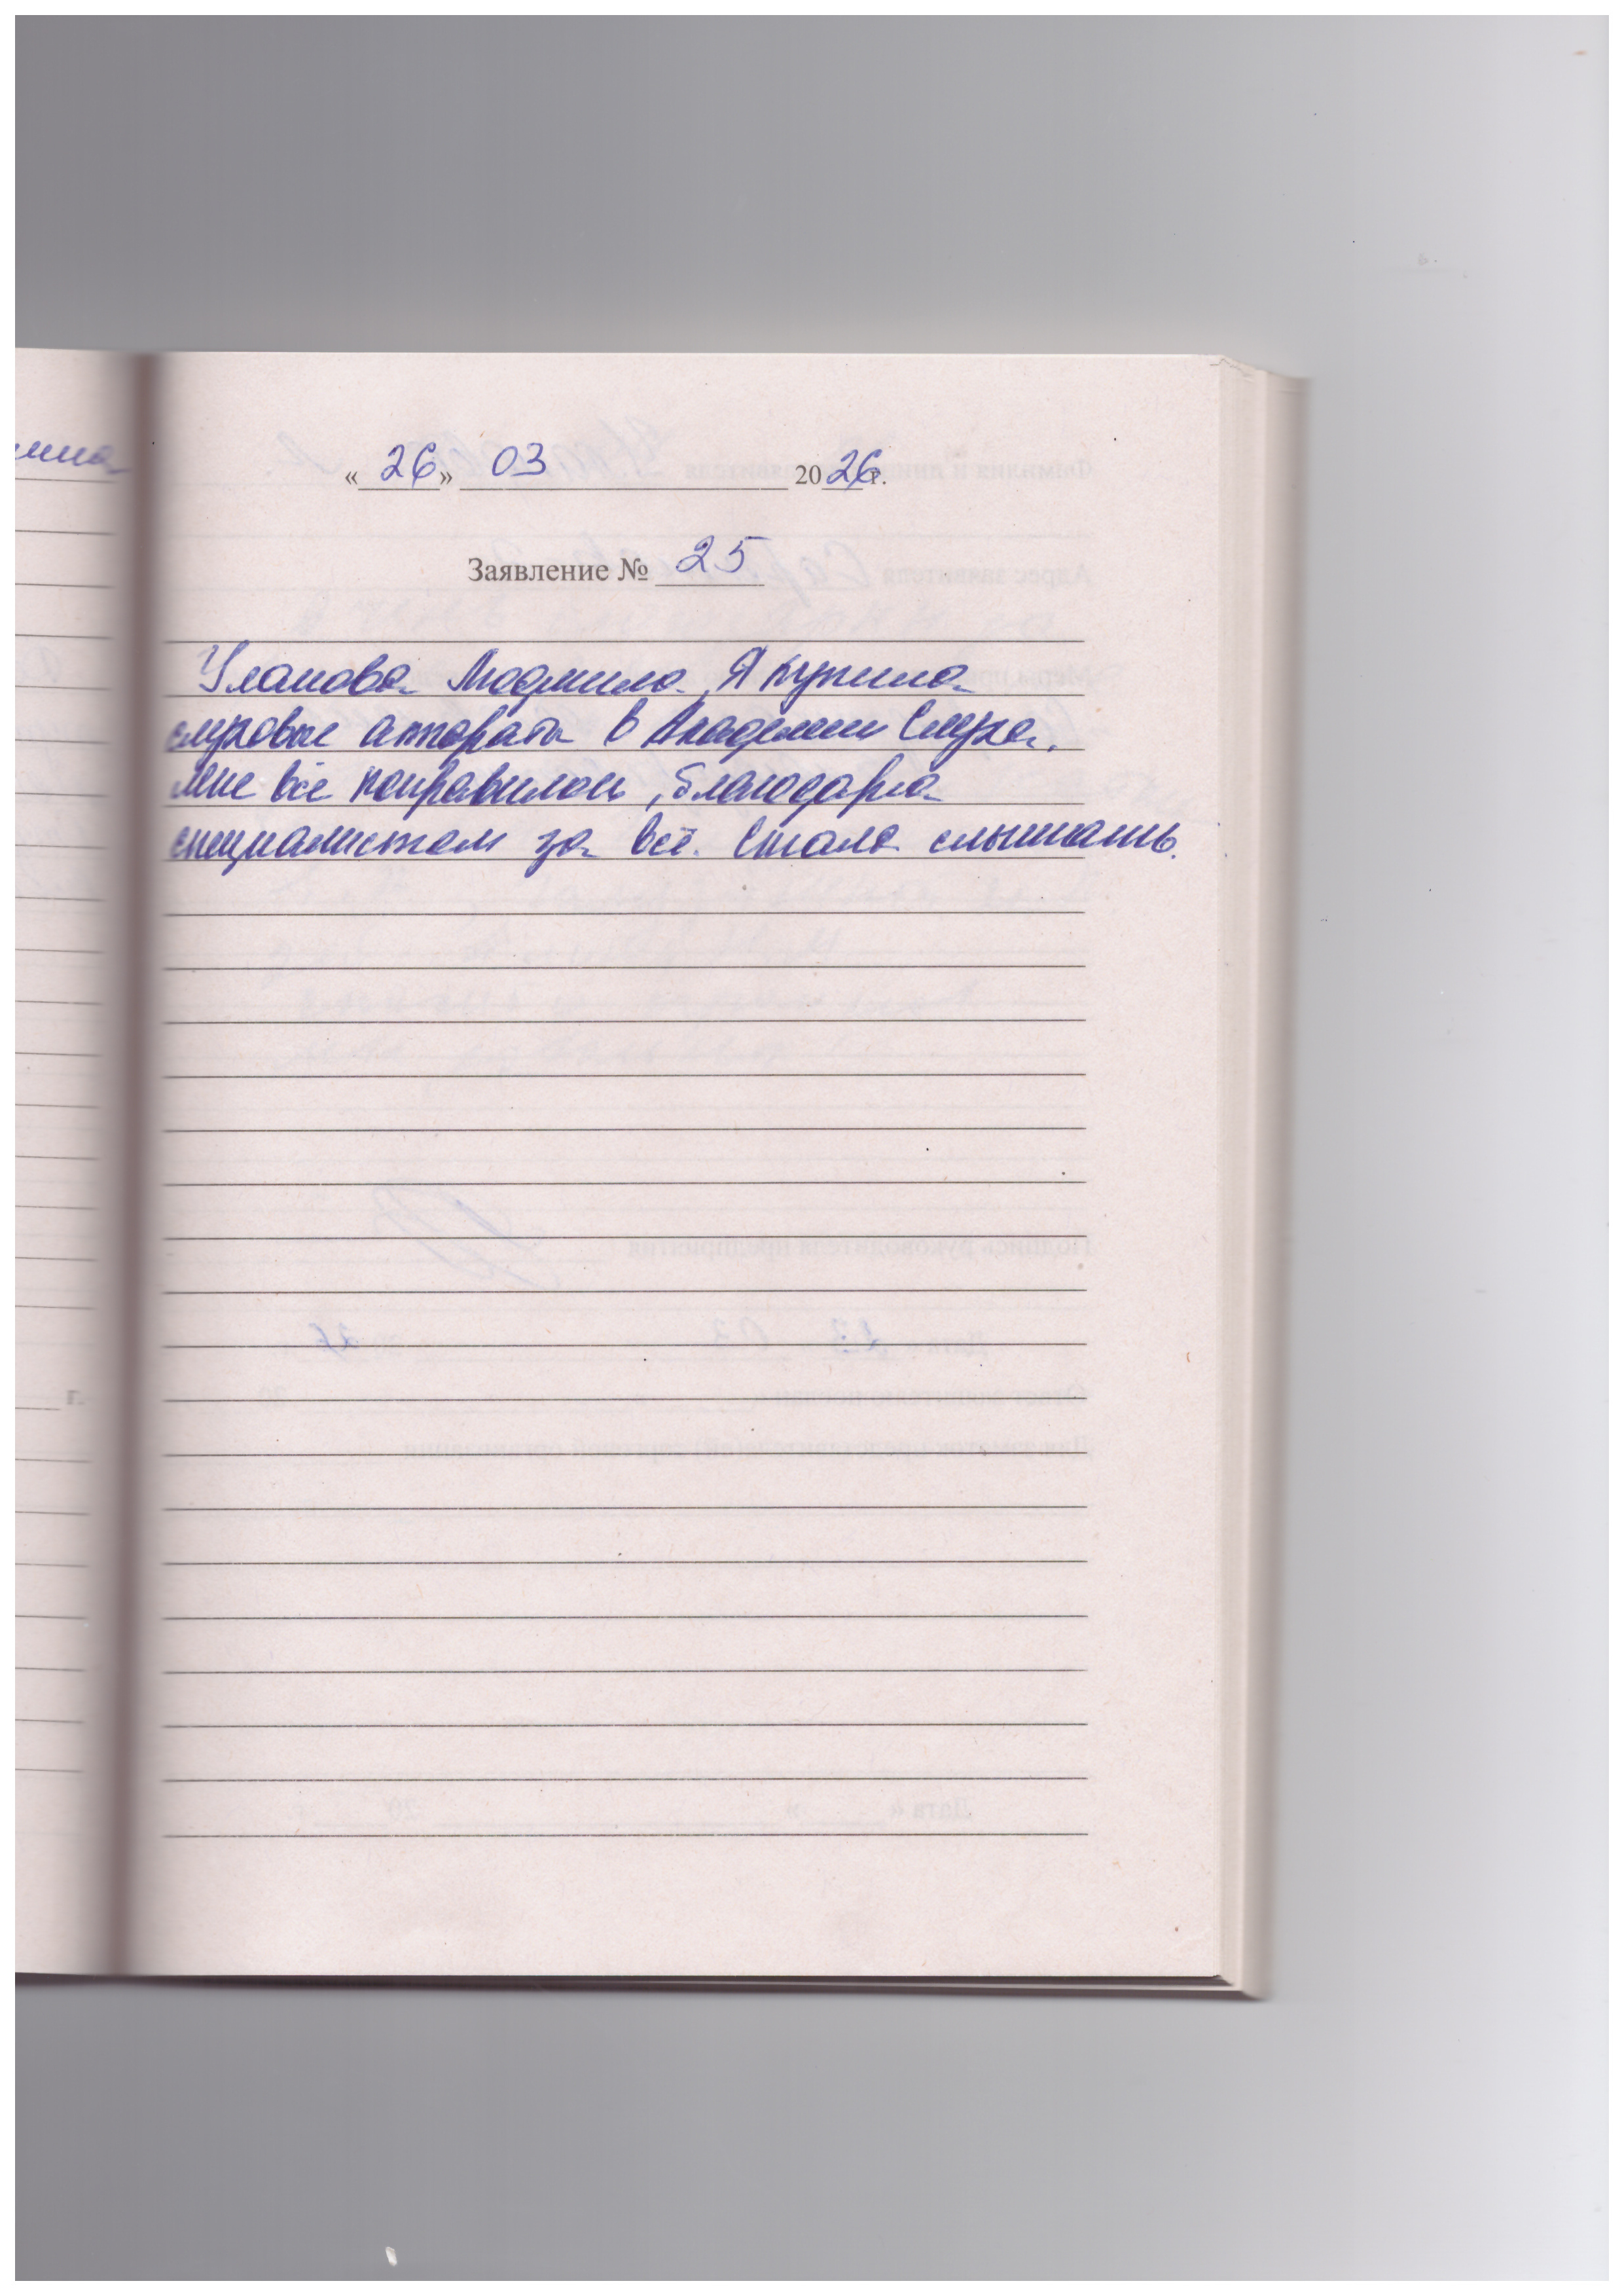 «26» 03 2026 г.
Заявление № 25
Уланова Людмила. Я купила
слуховые аппараты в Академии Слуха.
Мне всё понравилось, благодарна
специалистам за всё. Стала слышать.